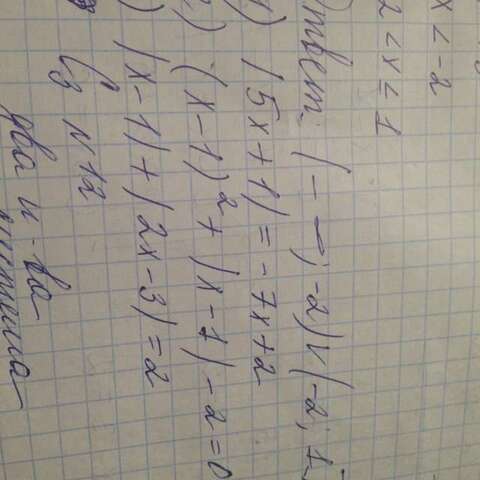 x < -2
2 < x ≤ 1
Ответ: (-∞; -2) ∨ (-2; 1
1) |5x+1| = -7x+2
) (x-1)² + |x-1| - 2 = 0
) |x-1| + |2x-3| = 2
Сз N 12
два н-ва